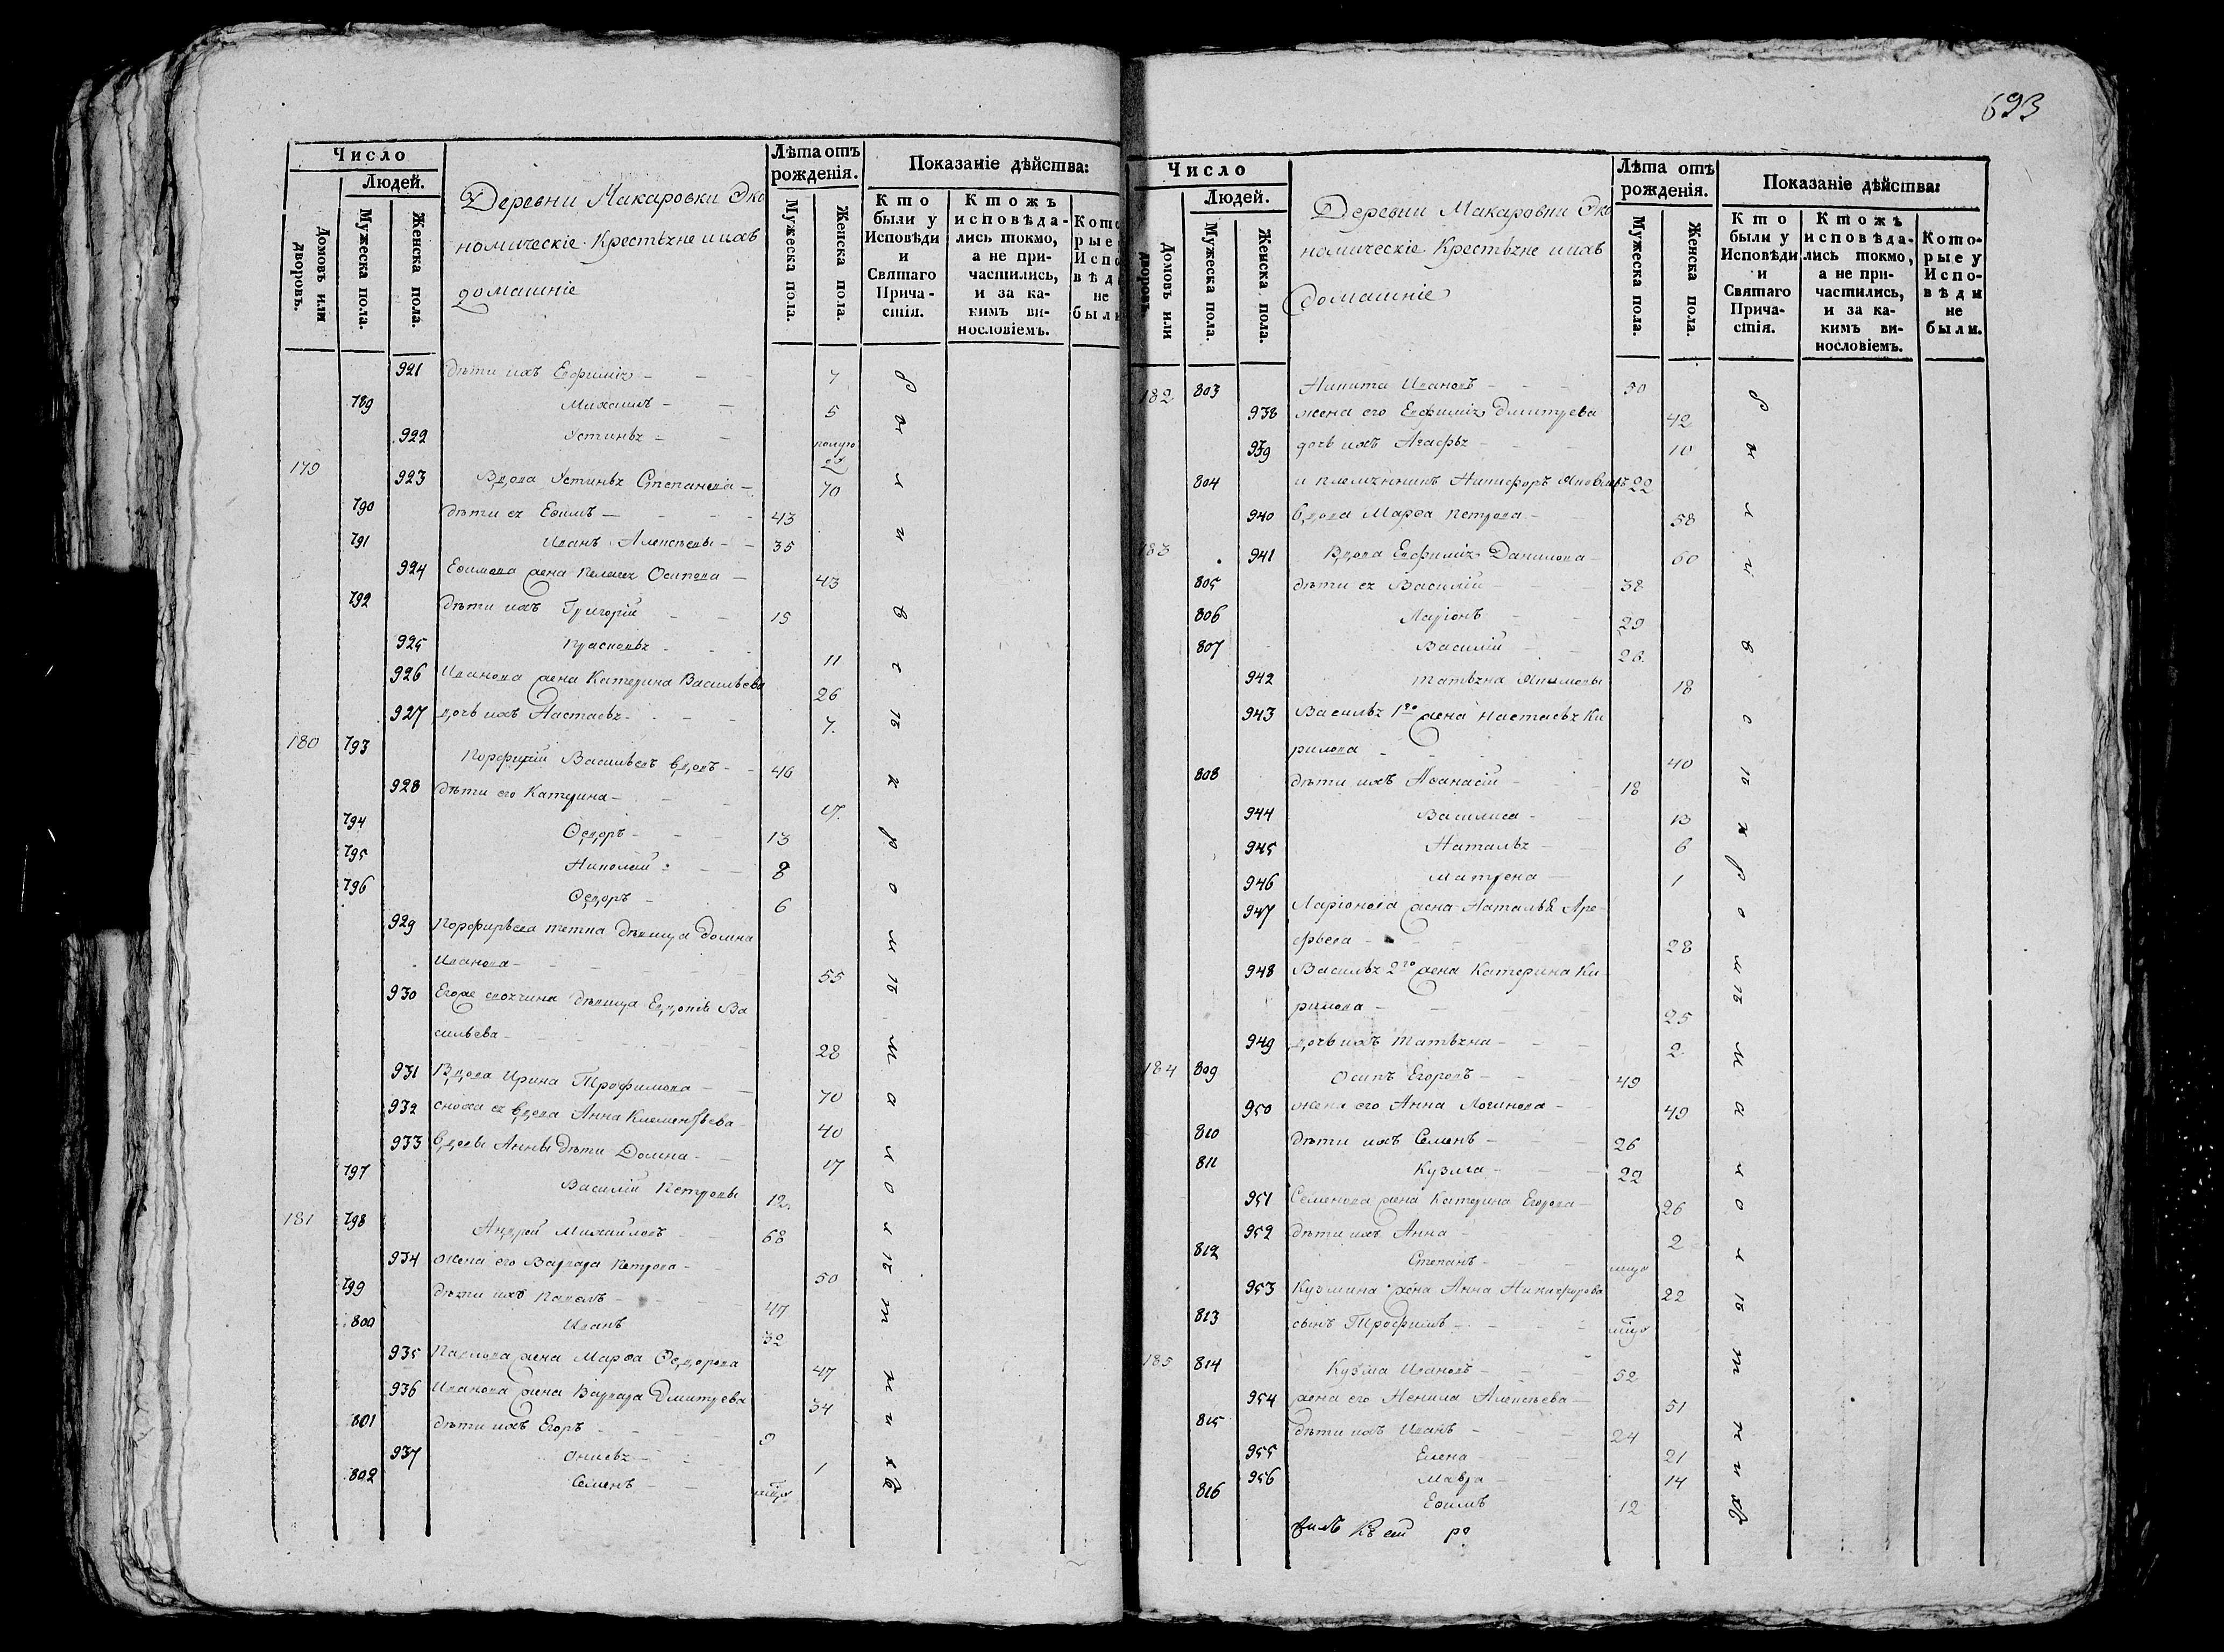 693
Число
Людей.
Домовъ или дворовъ.
Мужеска пола.
Женска пола.
Деревни Макаровки Эко
номическіе Крестьяне и ихъ
домашніе
Лѣта отъ рожденія.
Мужеска пола.
Женска пола.
Показаніе дѣйства:
Кто были у Исповѣди и Святаго Прича-стія.
Ктожъ исповѣда-лись токмо, а не при-частились, и за ка-кимъ ви-нословіемъ.
921 дѣти ихъ Евфимія - 7
789 Михаилъ - 5
922 Устинья -
179 923 Вдова Устинья Степанова - 70
790 дѣти ея Ефимъ - 43
791 Иванъ Алексѣевы - 35
924 Ефимова жена Пелагея Осипова - 43
792 дѣти ихъ Григорій - 15
925 Прасковья - 11
926 Иванова жена Катерина Васильева 26
927 дочь ихъ Настасья - 7.
180 793 Порфирій Васильевъ вдовъ - 46
928 дѣти его Катерина - 17.
794 Ѳедоръ - 13
795 Николай - 8
796 Ѳедоръ - 6
929 Порфирьева тетка дѣвица Домна
Иванова - 55
930 дѣвица Евдокія Ва
сильева - 28
931 Вдова Ирина Трофимова - 70
932 сноха ея вдова Анна Клементьева 40
933 вдовы Анны дѣти Домна - 17
797 Василій Петровы 12.
181 798 Андрей Михайловъ 68
934 жена его Варвара Петрова - 50
799 дѣти ихъ Павелъ - 47
800 Иванъ 32
935 Павлова жена Марѳа Ѳедорова 47
936 Иванова жена Варвара Дмитрева 34
801 дѣти ихъ Егоръ 9
937 Анисья - 1
802 Семенъ -
Число
Людей.
Домовъ или дворовъ.
Мужеска пола.
Женска пола.
Деревни Макаровки Эко
номическіе Крестьяне и ихъ
домашніе
Лѣта отъ рожденія.
Мужеска пола.
Женска пола.
Показаніе дѣйства:
Кто были у Исповѣди и Святаго Прича-стія.
Ктожъ исповѣда-лись токмо, а не при-частились, и за ка-кимъ ви-нословіемъ.
Кото-рые у Испо-вѣди не были.
182 803 Никита Ивановъ - 50
938 жена его Евфимія Дмитрева 42
939 дочь ихъ Агафья - 10
804 и племянникъ Никифоръ Яковлевъ 22
940 вдова Марѳа Петрова - 58
183 941 Вдова Евфимія Данилова - 60
805 дѣти ея Василій - 38
806 Ларіонъ 29
807 Василій 26.
942 Татьяна 18
943 Василья 1го жена Настасья Ки
рилова 40
808 дѣти ихъ Аѳанасій 18
944 Василиса 13
945 Наталья 6
946 Матрена 1
947 Ларіонова жена Наталья Аре
фьева - 28
948 Василья 2го жена Катерина Ки
рилова - 25
949 дочь ихъ Татьяна - 2
184 809 Осипъ Егоровъ - 49
950 жена его Анна Логинова - 49
810 дѣти ихъ Семенъ - 26
811 Кузма - 22
951 Семенова жена Катерина Егорова - 26
952 дѣти ихъ Анна - 2
812 Степанъ -
953 Кузмина жена Анна Никифорова 22
813 сынъ Трофимъ -
185 814 Кузма Ивановъ - 52
954 жена его Ненила Алексѣева - 51
815 дѣти ихъ Иванъ - 24
955 Елена - 21
956 Мавра - 14
816 Ефимъ 12